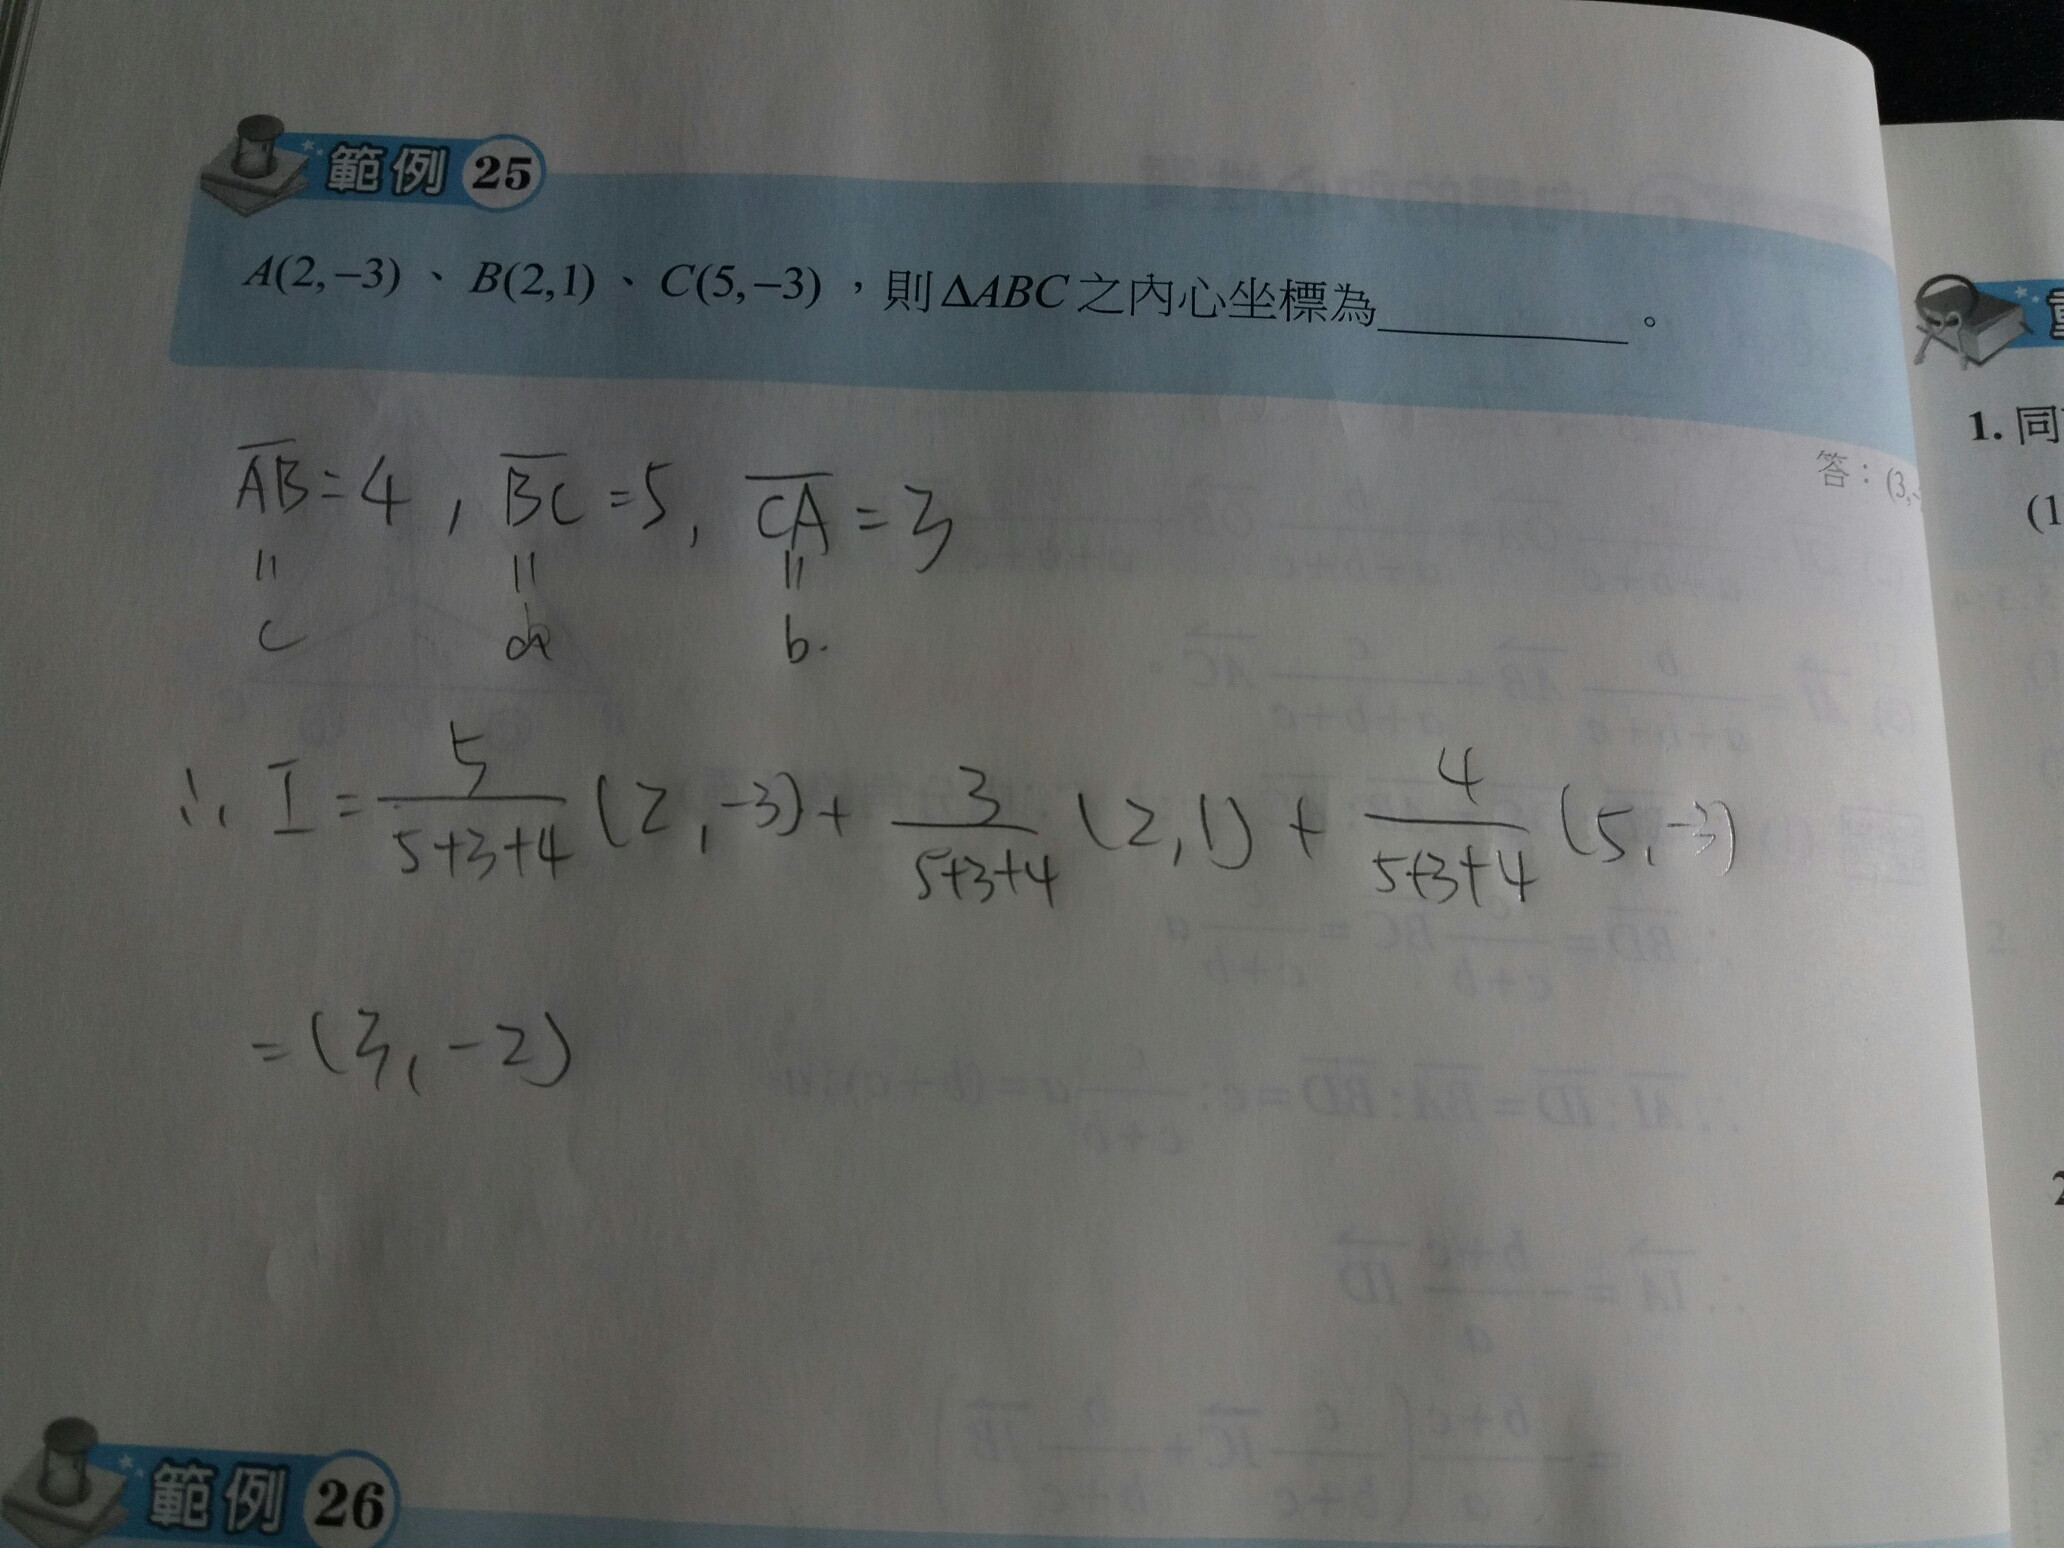 範例 25
A(2,−3)、B(2,1)、C(5,−3),則ΔABC之內心坐標為__________。
答:(3,-
AB=4, BC=5, CA=3
= = =
c a b.
∴ I = 5/(5+3+4) (2,-3) + 3/(5+3+4) (2,1) + 4/(5+3+4) (5,-3)
= (3,-2)
範例 26
1. 同
(1
2